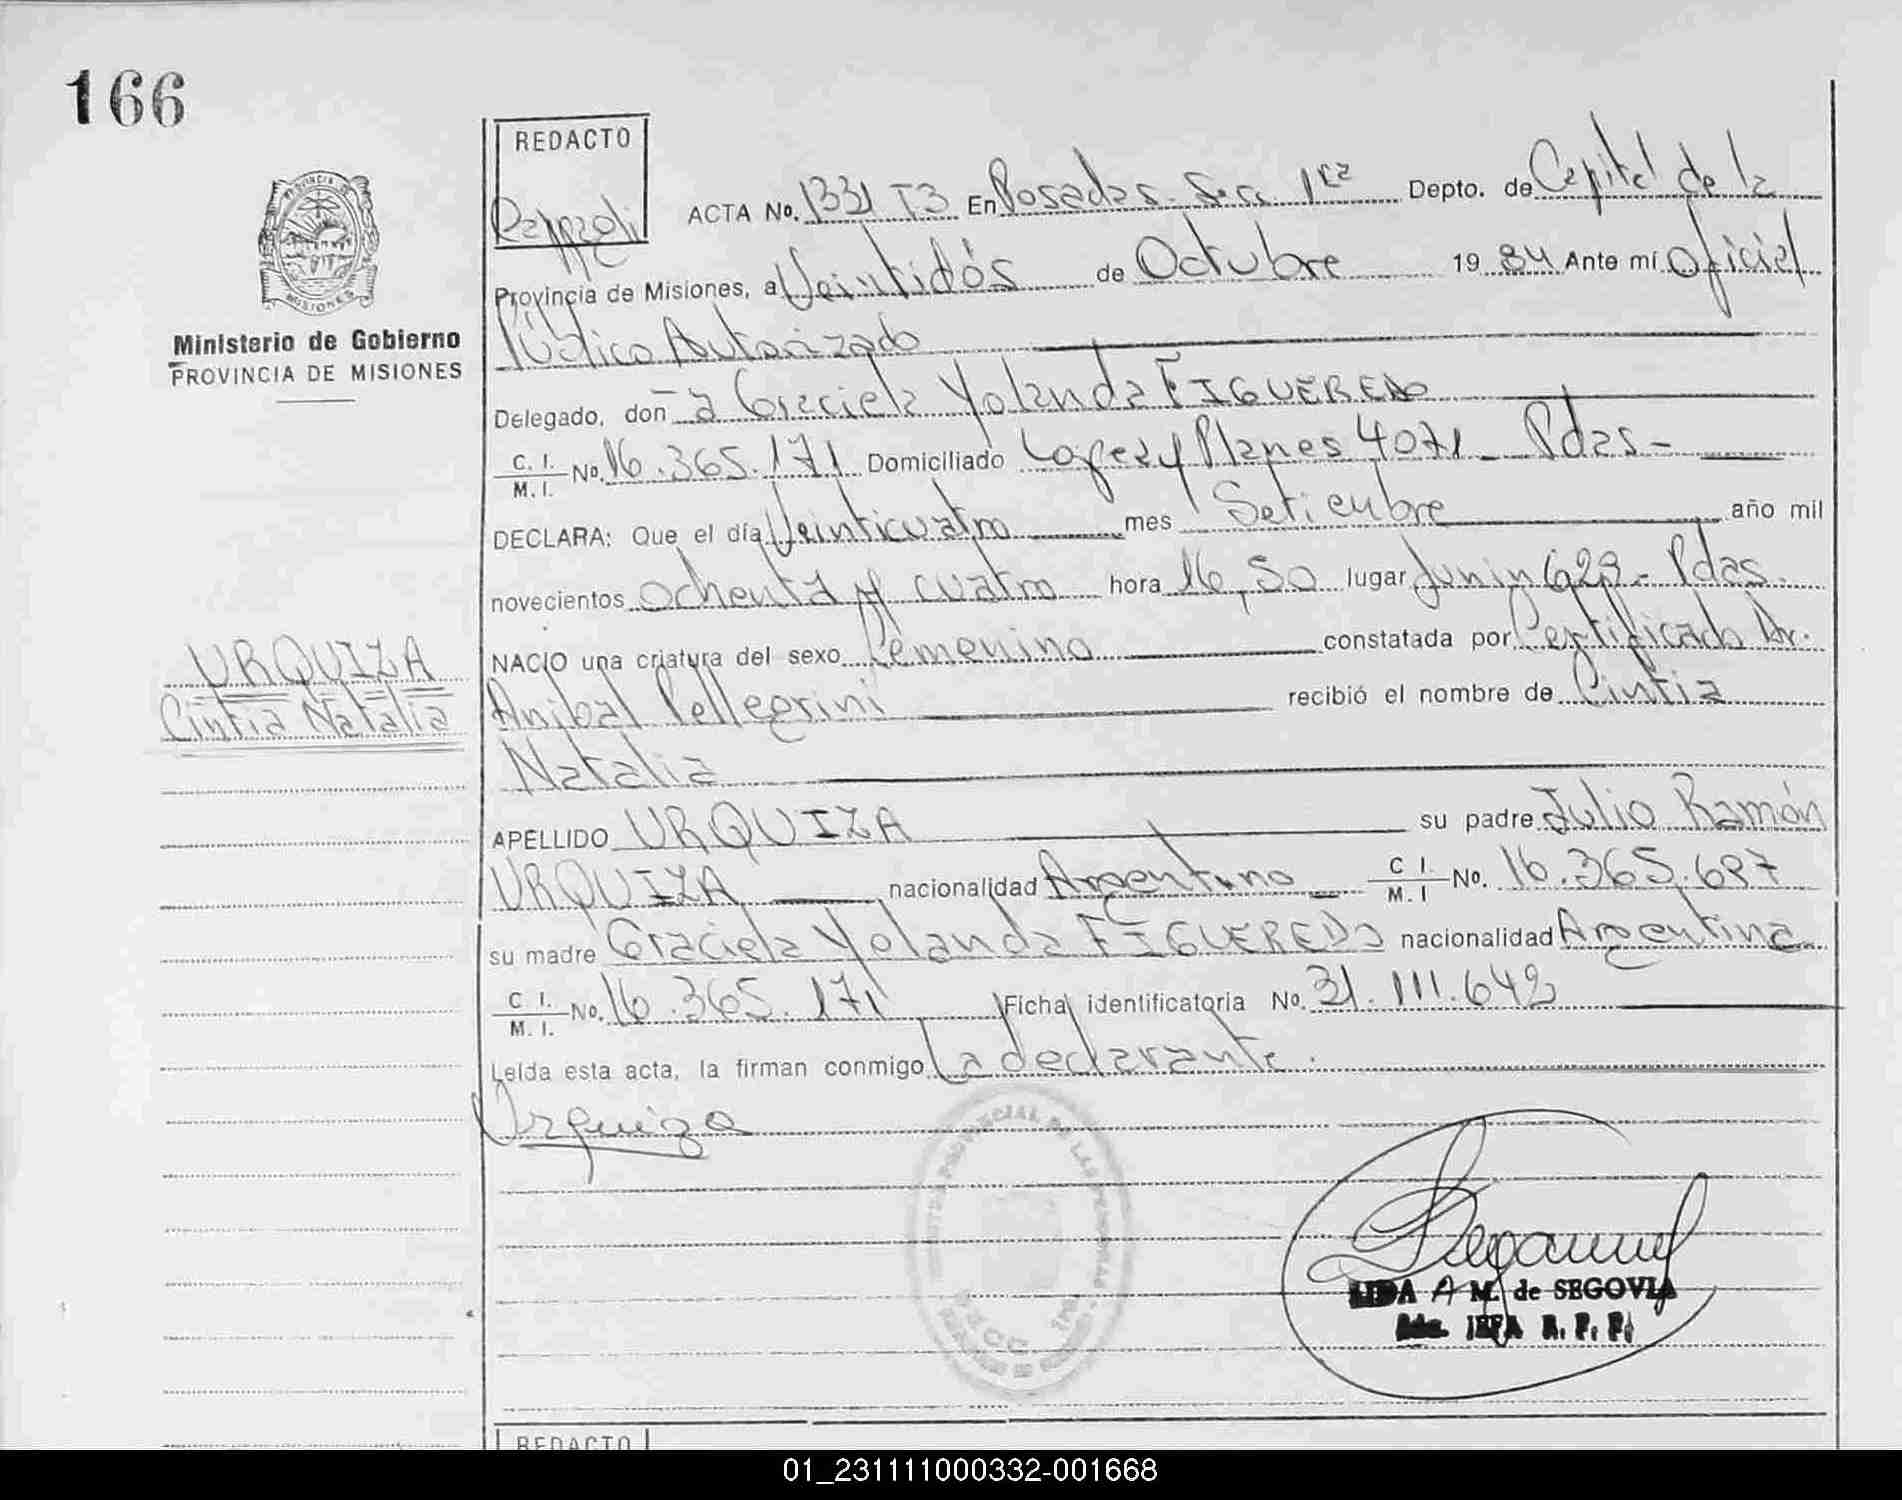 166
REDACTO
ACTA No. 1331 T3 En Posadas. Secc 1ra Depto. de Capital de la
PROVINCIA DE
MISIONES
Provincia de Misiones, a Veintidós de Octubre 19 84 Ante mí Oficial
Ministerio de Gobierno
PROVINCIA DE MISIONES
Público Autorizado
Delegado, don - a Graciela Yolanda FIGUEREDO
C. I. No. 16.365.171 Domiciliado Lopez y Planes 4071 - Pdas -
M. I.
DECLARA: Que el día Veinticuatro mes Setiembre año mil
novecientos ochenta y cuatro hora 16,50 lugar Junin 629 - Pdas.
URQUIZA
NACIO una criatura del sexo Femenino constatada por Certificado Dr.
Cintia Natalia
Anibal Pellegrini recibió el nombre de Cintia
Natalia
APELLIDO URQUIZA su padre Julio Ramón
URQUIZA nacionalidad Argentino C I. No. 16.365.687
M. I
su madre Graciela Yolanda FIGUEREDO nacionalidad Argentina
C I. No. 16.365.171 Ficha identificatoria No. 31.111.642
M. I.
Leída esta acta, la firman conmigo La declarante.
Urquiza
LIDA A M. de SEGOVIA
R. P. P.
REDACTO
01_231111000332-001668